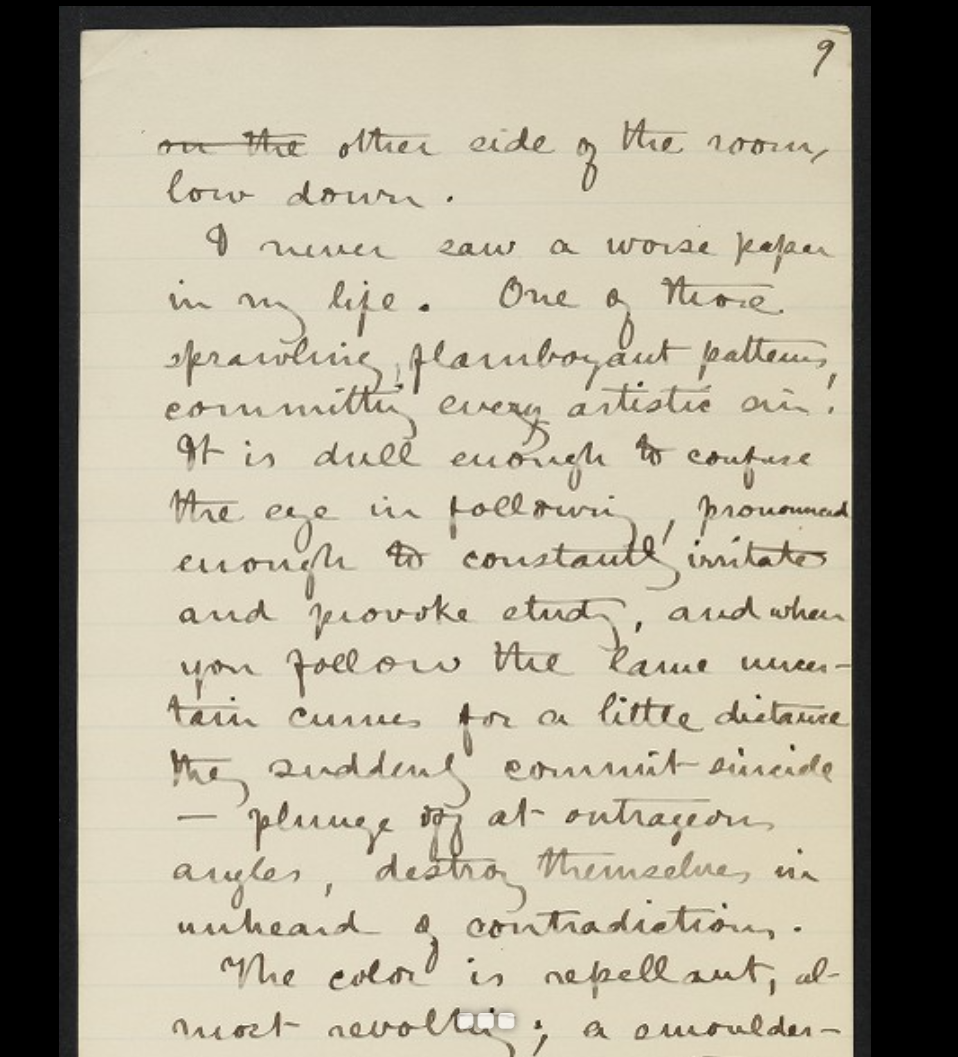 9
on the other side of the room,
low down.
I never saw a worse paper
in my life. One of those
sprawling, flamboyant patterns,
committing every artistic sin!
It is dull enough to confuse
the eye in following, pronounced
enough to constantly irritate
and provoke study, and when
you follow the lame uncer-
tain curves for a little distance
they suddenly commit suicide
— plunge off at outrageous
angles, destroy themselves in
unheard of contradictions.
The color is repellant, al-
most revolting; a smoulder-